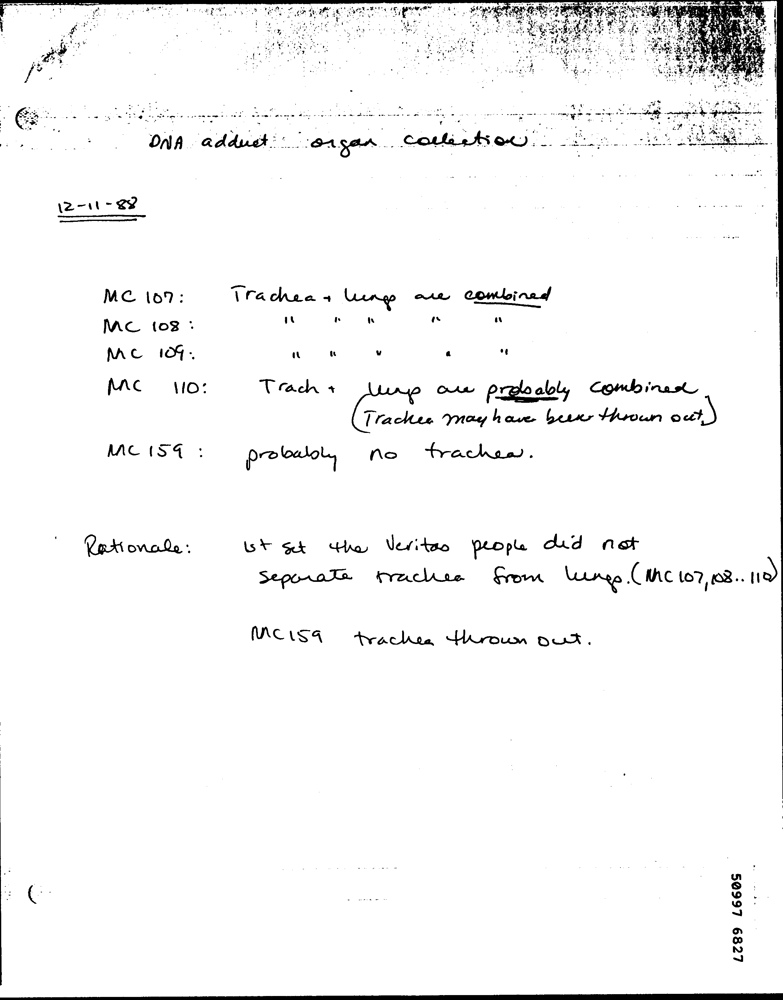 DNA adduct organ collection
12-11-88
MC 107: Trachea + lungs are combined
MC 108: " " " " "
MC 109: " " " " "
MC 110: Trach + lungs are probably combined.
(Trachea may have been thrown out.)
MC 159: probably no trachea.
Rationale: 1st set the Veritas people did not
separate trachea from lungs. (MC 107, 108..110)
MC159 trachea thrown out.
50997 6827